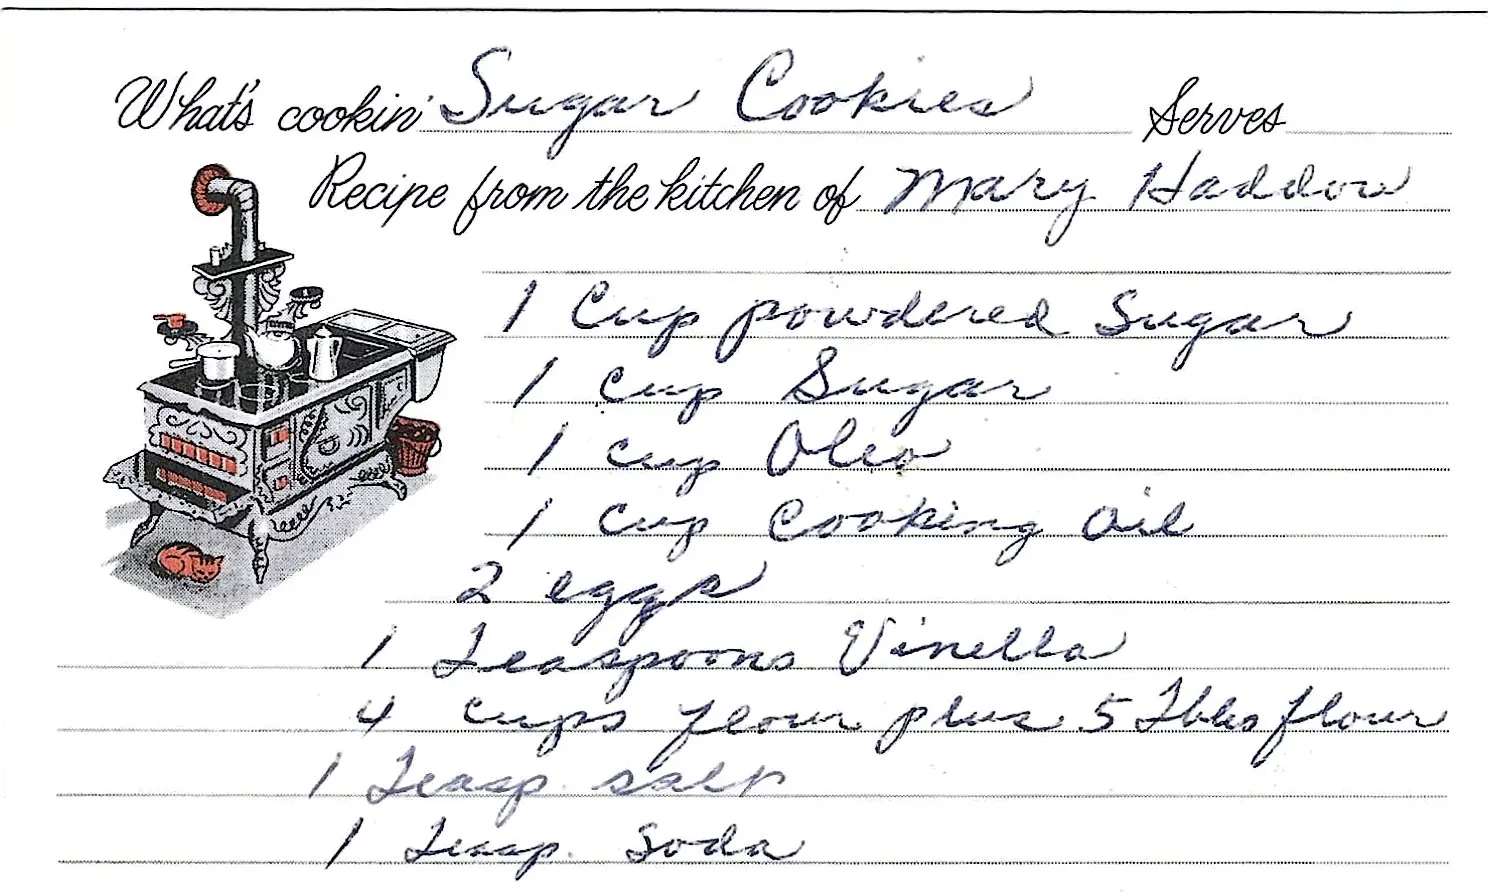 What's cookin' Sugar Cookies Serves
Recipe from the kitchen of Mary Haddow
1 Cup powdered Sugar
1 cup Sugar
1 cup Oleo
1 cup Cooking Oil
2 eggs
1 Teaspoons Vinella
4 cups flour plus 5 Tbls flour
1 Teasp. salt
1 Teasp. Soda